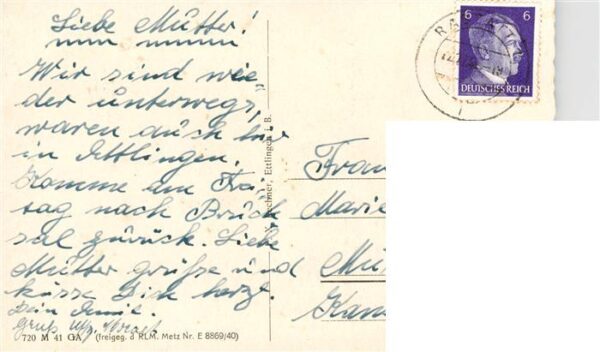 Liebe Mutter!
Wir sind wie
der unterwegs,
waren auch hier
in Ettlingen.
Komme am Frei
tag nach Bruch
sal zurück. Liebe
Mutter grüße und
küsse Dich herzl.
Dein
Gruß
720 M 41 GA (freigeg. d RLM. Metz Nr. E 8869/40)
Ettlingen i. B.
6 6
DEUTSCHES REICH
Frau
Marie